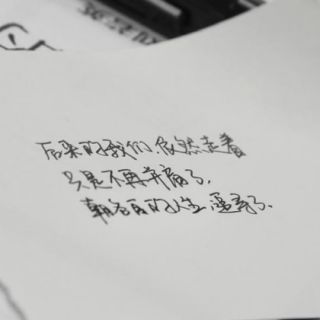 后来的我们依然走着
只是不再并肩了
朝各自的人生追寻了